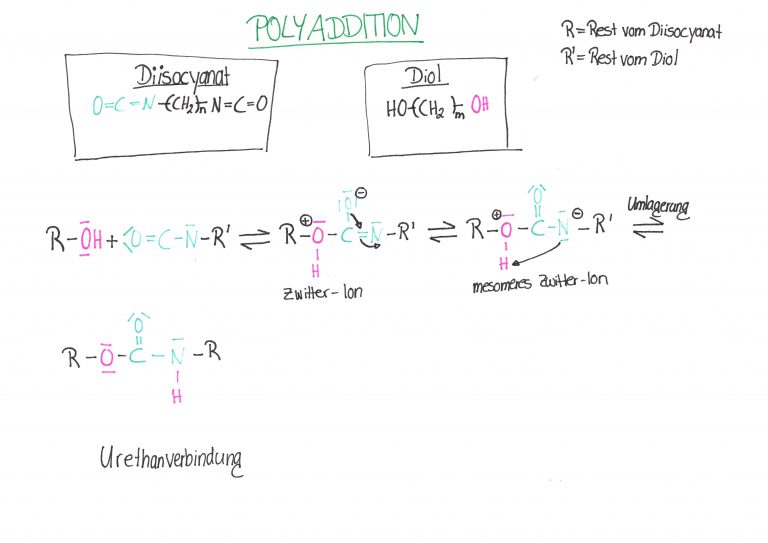 POLYADDITION
R = Rest vom Diisocyanat
R' = Rest vom Diol
Diisocyanat
O=C=N-(CH₂)ₙ-N=C=O
Diol
HO-(CH₂)ₘ-OH
R-OH + O=C-N-R' ⇌ R-O-C=N-R' ⇌ R-O-C-N-R' Umlagerung ⇌
⊕ O ⊖ H
⊕ O ⊖ H
Zwitter-Ion
mesomeres Zwitter-Ion
O
R-O-C-N-R
H
Urethanverbindung